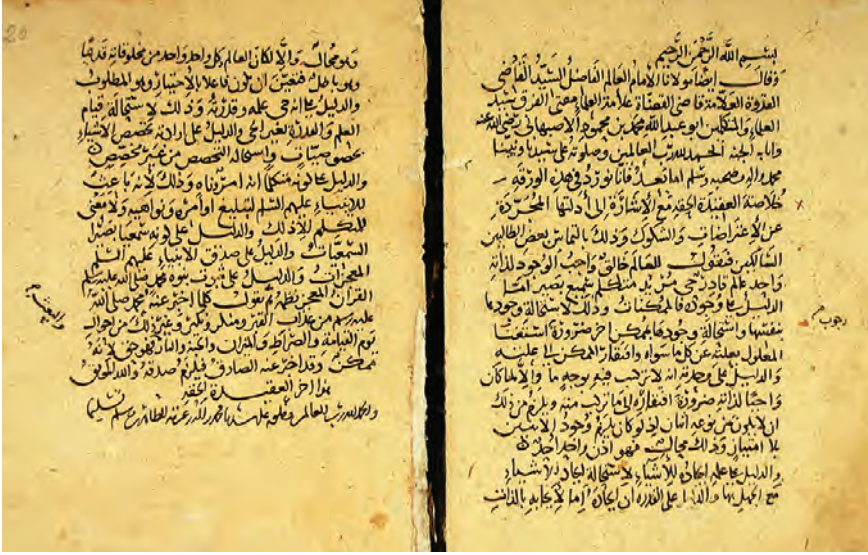 بسم الله الرحمن الرحيم
وقال ايضا مولانا الامام العالم الفاضل السيد القاضي
القدوة العلامة قاضي القضاة علامة العلماء مفتي الفرق سيد
العلماء والمتكلمين ابو عبد الله محمد بن محمود الاصبهاني رضي الله عنه
واثابه الجنة الحمد لله رب العالمين وصلوته على سيدنا ونبينا
محمد واله وصحبه وسلم اما بعد فانا نورد في هذه الورقة
خلاصة العقيدة الحقه مع الاشارة الى ادلتها المجردة
عن الاعتراضات والشكوك وذلك بالتماس بعض الطالبين
السالكين فنقول للعالم خالق واجب الوجود لذاته
واحد عالم قادر حي مريد متكلم سميع بصير اما
الدليل على وجوده فالممكنات وذلك لاستحالة وجودها
بنفسها واستحالة وجودها بممكن اخر ضرورة استغنا
المعلول بعلته عن كل ما سواه وافتقار الممكن الى علته
والدليل على وحدته انه لا تركيب فيه بوجه ما والا لما كان
واجبا لذاته ضرورة افتقاره الى ما تركب منه ويلزم من ذلك
ان لا يكون من نوعه اثنان اذ لو كان يلزم وجود الاثنين
بلا امتياز وذلك محال فهو اذن واحد احد
والدليل على علمه ايجاده للاشياء لاستحالة ايجاد الاشياء
مع الجهل بها والدليل على القدرة ان ايجاده اما لايجابه بالذات
وجوب
20
وهو محال والا لكان العالم وكل واحد واحد من مخلوقاته قديما
وهو باطل فتعين ان يكون فاعلا بالاختيار وهو المطلوب
والدليل على انه حي علمه وقدرته وذلك لاستحالة قيام
العلم والقدرة بغير الحي والدليل على ارادته تخصيص الاشياء
بخصوصيات واستحالة التخصص من غير مخصص
والدليل على كونه متكلما انه امر وناه وذلك لانه باعث
للانبياء عليهم السلم لتبليغ اوامره ونواهيه ولا معنى
للمتكلم الا ذلك والدليل على كونه سميعا بصيرا
السمعيات والدليل على صدق الانبياء عليهم السلم
المعجزات والدليل على ثبوت نبوة محمد صلى الله عليه وسلم
القرآن المعجز نظمه ثم نقول كلما اخبر عنه محمد صلى الله
عليه وسلم من عذاب القبر ومنكر ونكير وغير ذلك من احوال
يوم القيامة والصراط والميزان والجنة والنار فهو حق لانه
ممكن وقد اخبر عنه الصادق فيلزم صدقه والله الموفق
هذا اخر العقيدة الحقه
والحمد لله رب العالمين وصلوته على سيدنا محمد واله وعترته الطاهرين وسلم تسليما